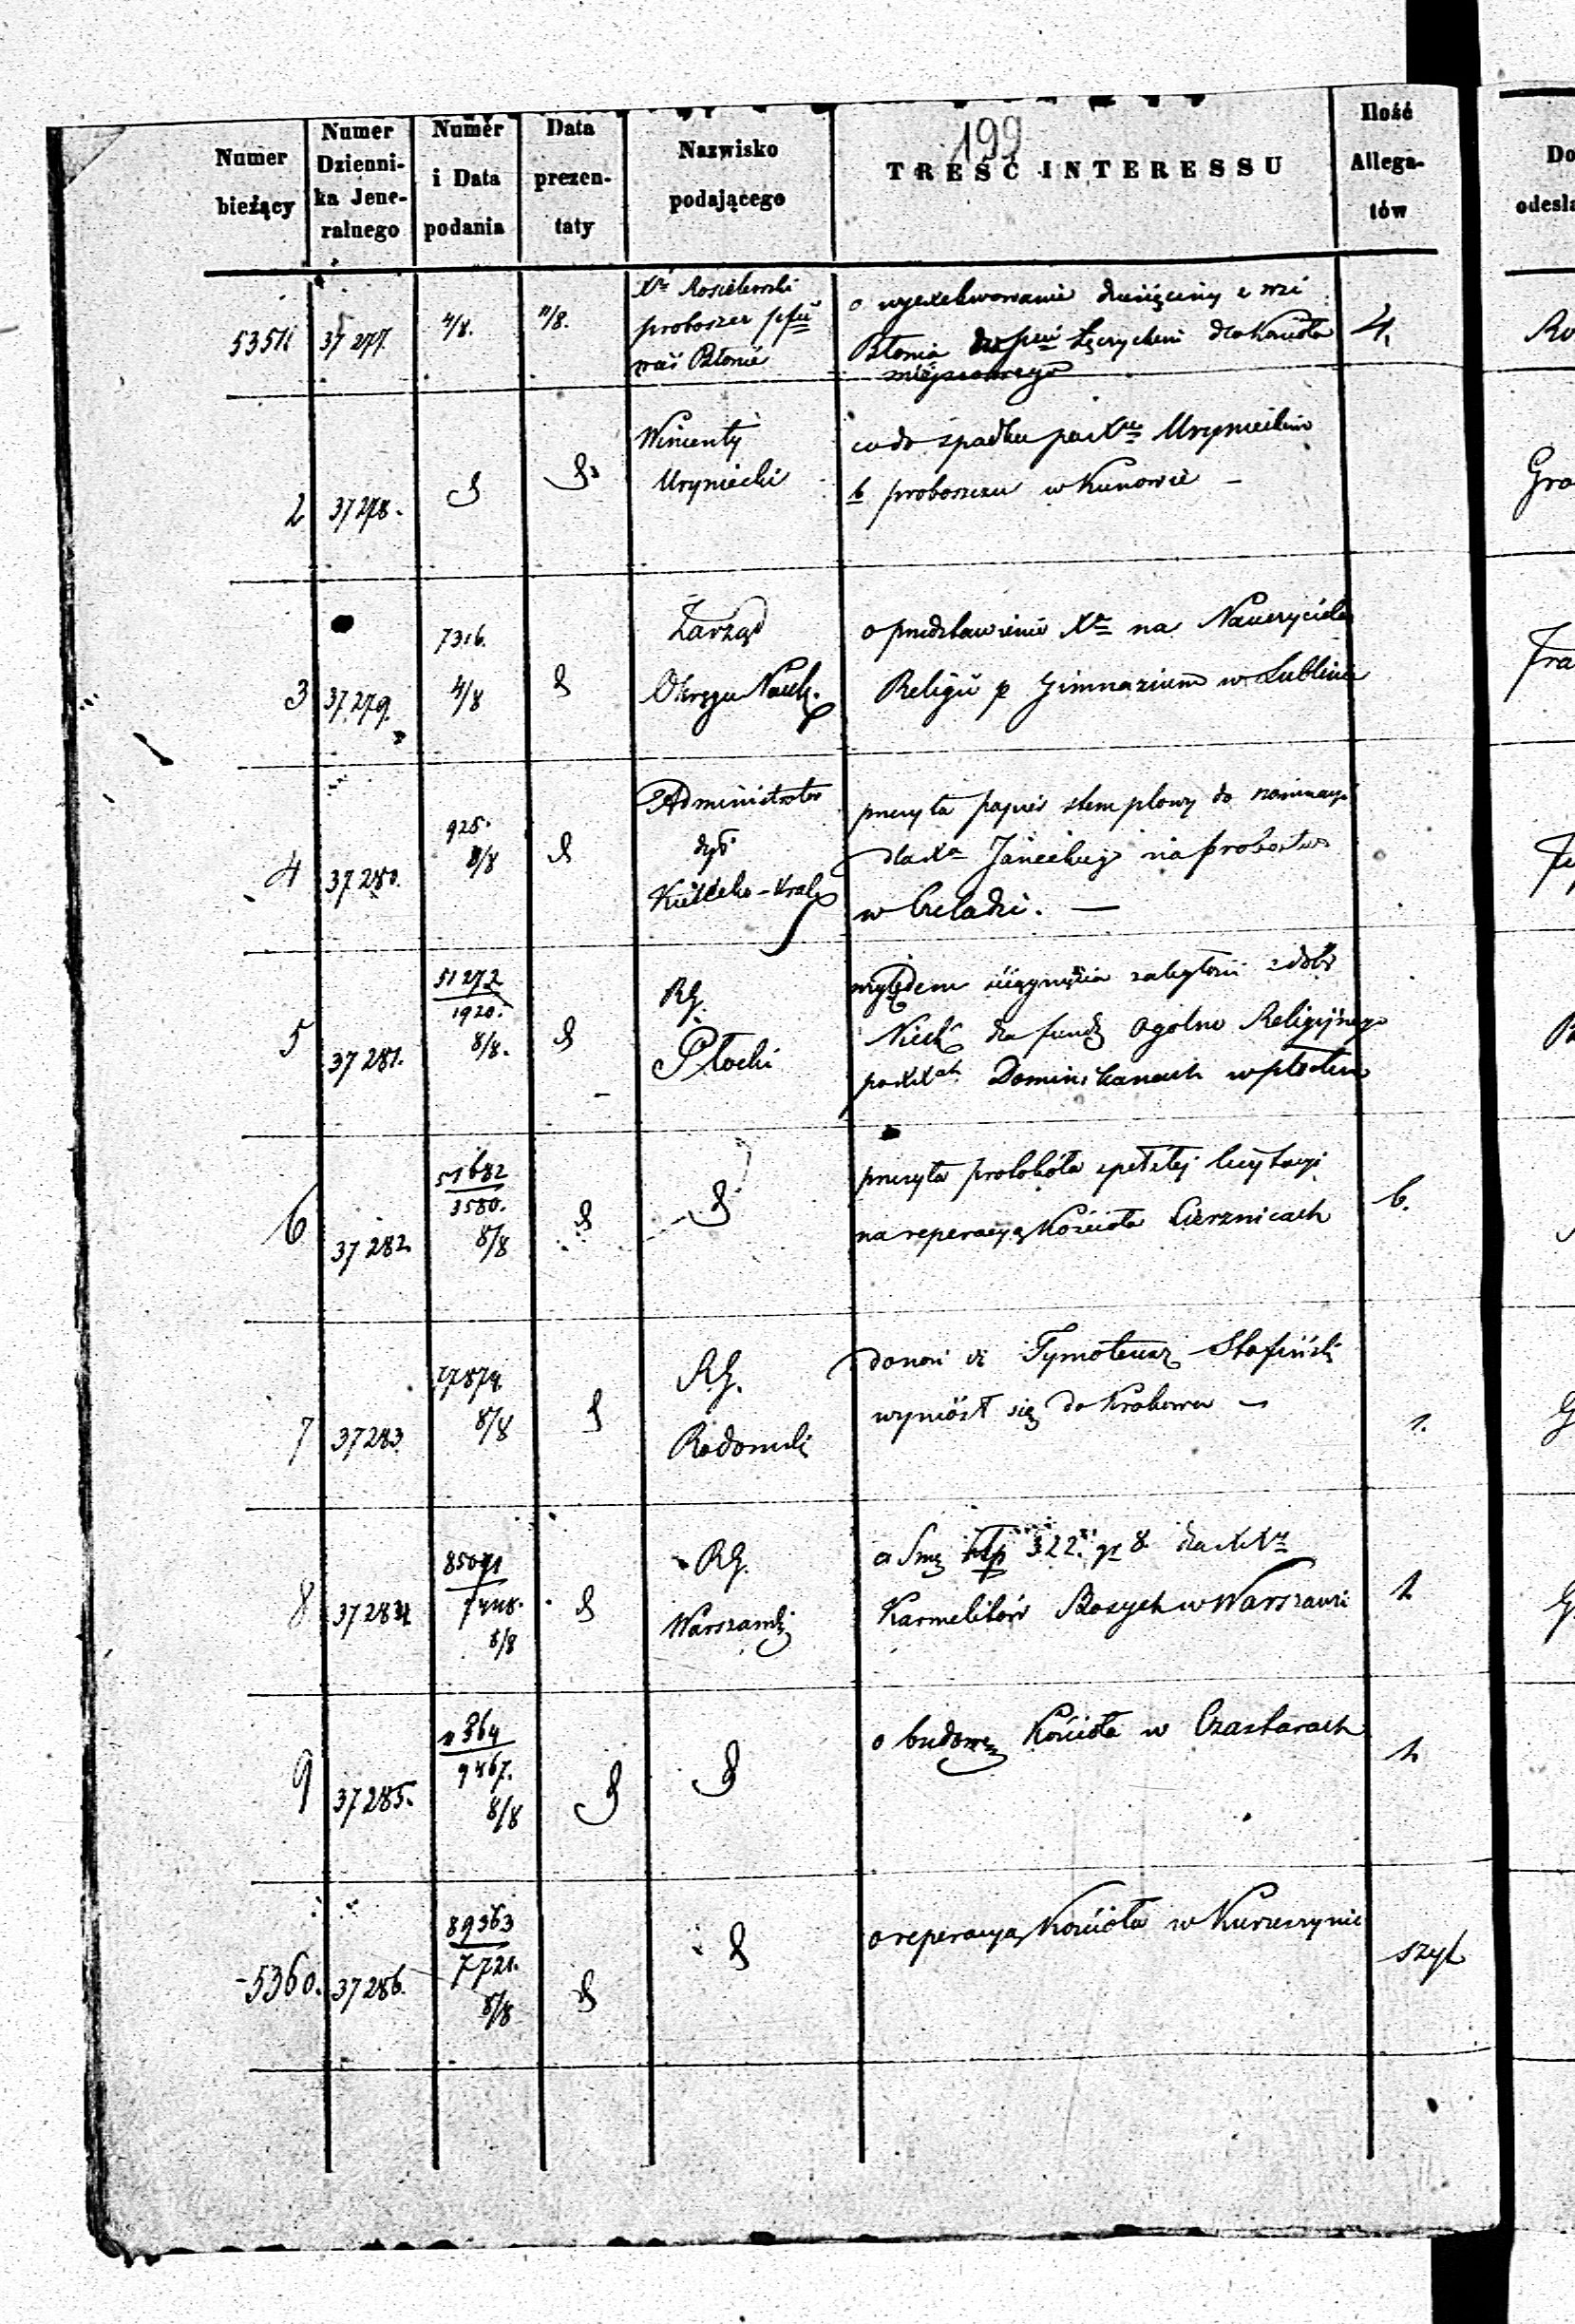 199
Numer
bieżący
Numer
Dzienni-
ka Jene-
ralnego
Numer
i Data
podania
Data
prezen-
taty
Nazwisko
podającego
TREŚĆ INTERESSU
Ilość
Allega-
tów
Do
odesła
37277.
4/8.
11/8.
proboszcz
wsi Błonie
o wyexekwowanie dziesięciny z wsi
Błonia Łęczyckim dla Kościoła
miejscowego
4.
2
37278.
Wincenty
Uryniecki
co do spadku po Xdzu Urynieckim
b proboszczu w Kunowie –
Gra
3
37279.
7316.
4/8
Zarząd
Okręgu Nauk.
o przedstawienie Xa na Nauczyciela
Religii p Gimnazium w Lublinie
Fra
4
37280.
925.
8/8
Administrator
dyć
Kielecko-Krak
przesyła papier stemplowy do nominacyi
dla Xa Janeckiego na probostwo
w Czeladzi. —
5
37281.
51272
1920.
8/8.
RG.
Płocki
względem ściągnięcia zaległości z dóbr
dla fundz ogólno Religijnego
po XXach Dominikanach w Płocku
6
37282
51682
3580.
8/8
przesyła protokóła spełzłej licytacyi
na reperacyą Kościoła
6.
7
37283.
27874.
8/8
R.G.
Radomski
donosi iż Tymoteusz Stafiński
wyniósł się do Krakowa –
1.
G
8
37284
8/8
RG.
Warszawski
o Smę złp 322. gr 8 dla XXy
Karmelitów Bosych w Warszawie
1
G
9
37285.
9467.
8/8
o budowę Kościoła w Czastarach
1
5360.
37286.
89363
7721.
8/8
o reperacyą Kościoła w Kurzeszynie
szyt